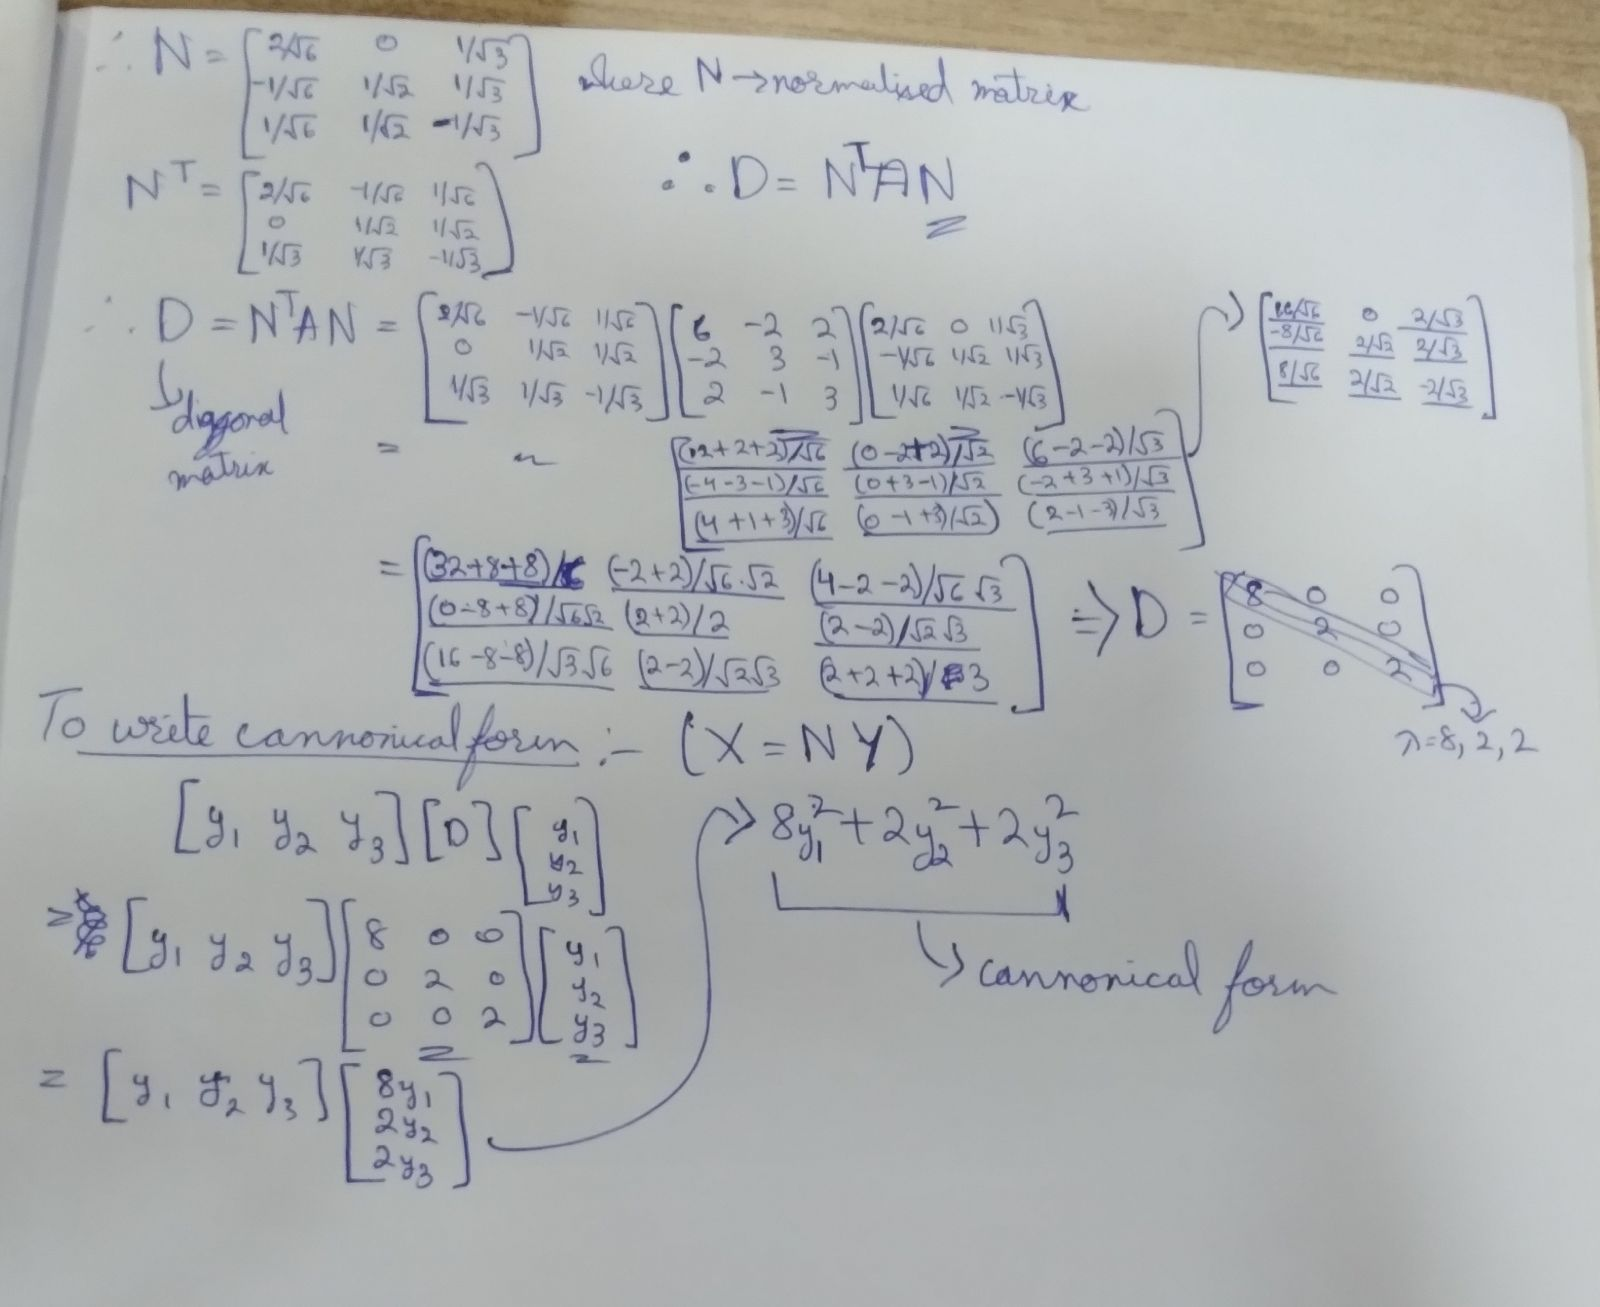 ∴ N = [2/√6 0 1/√3
-1/√6 1/√2 1/√3
1/√6 1/√2 -1/√3] where N → normalised matrix
N^T = [2/√6 -1/√6 1/√6
0 1/√2 1/√2
1/√3 1/√3 -1/√3]
∴ D = N^TAN
∴ D = N^TAN = [2/√6 -1/√6 1/√6
0 1/√2 1/√2
1/√3 1/√3 -1/√3] [6 -2 2
-2 3 -1
2 -1 3] [2/√6 0 1/√3
-1/√6 1/√2 1/√3
1/√6 1/√2 -1/√3]
↳ diagonal
matrix
= ~ [(12+2+2)/√6 (0-2+2)/√2 (6-2-2)/√3
(-4-3-1)/√6 (0+3-1)/√2 (-2+3+1)/√3
(4+1+3)/√6 (0-1+3)/√2) (2-1-3)/√3]
→ [16/√6 0 2/√3
-8/√6 2/√2 2/√3
8/√6 2/√2 -2/√3]
= [(32+8+8)/6 (-2+2)/√6.√2 (4-2-2)/√6 √3
(0-8+8)/√6√2 (2+2)/2 (2-2)/√2 √3
(16-8-8)/√3√6 (2-2)/√2√3 (2+2+2)/3]
⇒ D = [8 0 0
0 2 0
0 0 2]
λ=8, 2, 2
To write cannonical form :- (X = NY)
[y₁ y₂ y₃] [D] [y₁
y₂
y₃]
= [y₁ y₂ y₃] [8 0 0
0 2 0
0 0 2] [y₁
y₂
y₃]
= [y₁ y₂ y₃] [8y₁
2y₂
2y₃]
→ 8y₁² + 2y₂² + 2y₃²
↳ cannonical form